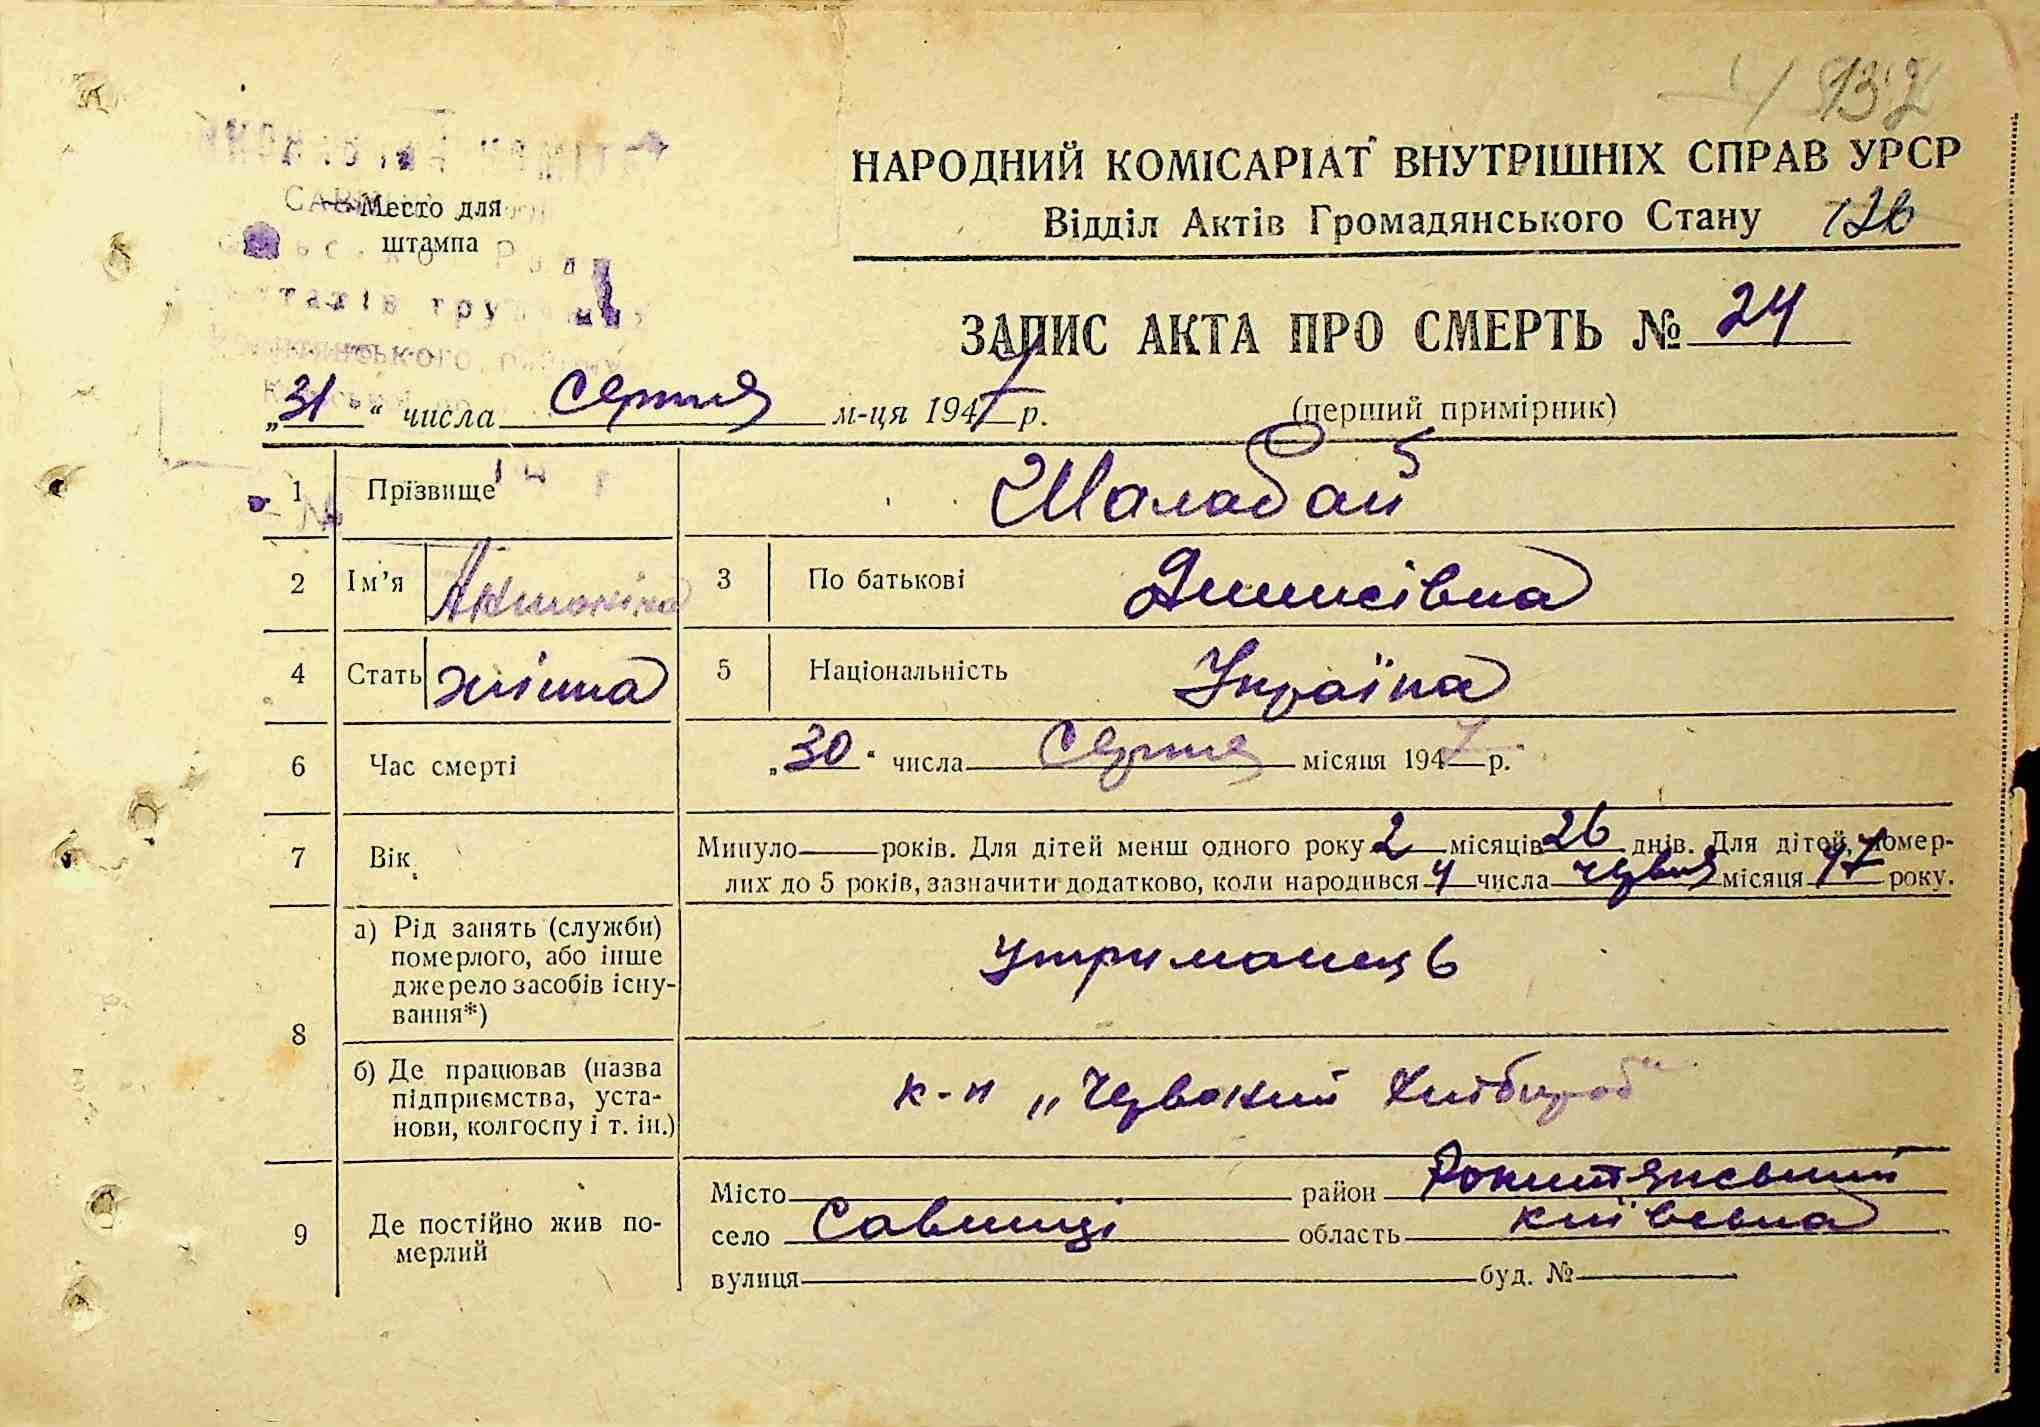 132
НАРОДНИЙ КОМІСАРІАТ ВНУТРІШНІХ СПРАВ УРСР
Відділ Актів Громадянського Стану 126
Место для
штампа
ЗАПИС АКТА ПРО СМЕРТЬ № 24
„31“ числа Серпня м-ця 1947 р. (перший примірник)
1 Прізвище Шалабай
2 Ім’я Антоніна 3 По батькові Денисівна
4 Стать жіноча 5 Національність Україна
6 Час смерті „30“ числа Серпня місяця 1947 р.
7 Вік Минуло років. Для дітей менш одного року 2 місяців 26 днів. Для дітей, помер-
лих до 5 років, зазначити додатково, коли народився 4 числа червня місяця 47 року.
8 а) Рід занять (служби)
померлого, або інше
джерело засобів існу-
вання*)
утриманець
б) Де працював (назва
підприємства, уста-
нови, колгоспу і т. ін.)
к-п „Червоний Хлібороб“
9 Де постійно жив по-
мерлий
Місто район Рокитянський
село Савинці область Київська
вулиця буд. №